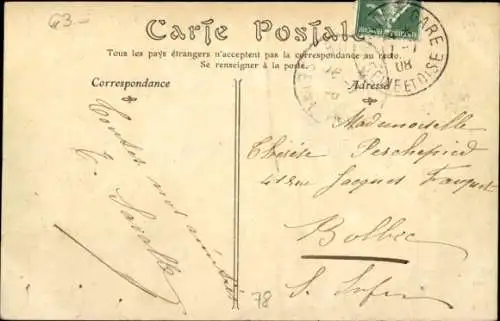 63-
Carte Postale
Tous les pays étrangers n'acceptent pas la correspondance au recto.
Se renseigner à la poste.
Correspondance
Adresse
GARE
08
SEINE ET OISE
Mademoiselle
Thérèse Perchepied
41 rue Jacques Fauquet
Bolbec
S. Infre
Toutes nos amitiés
78